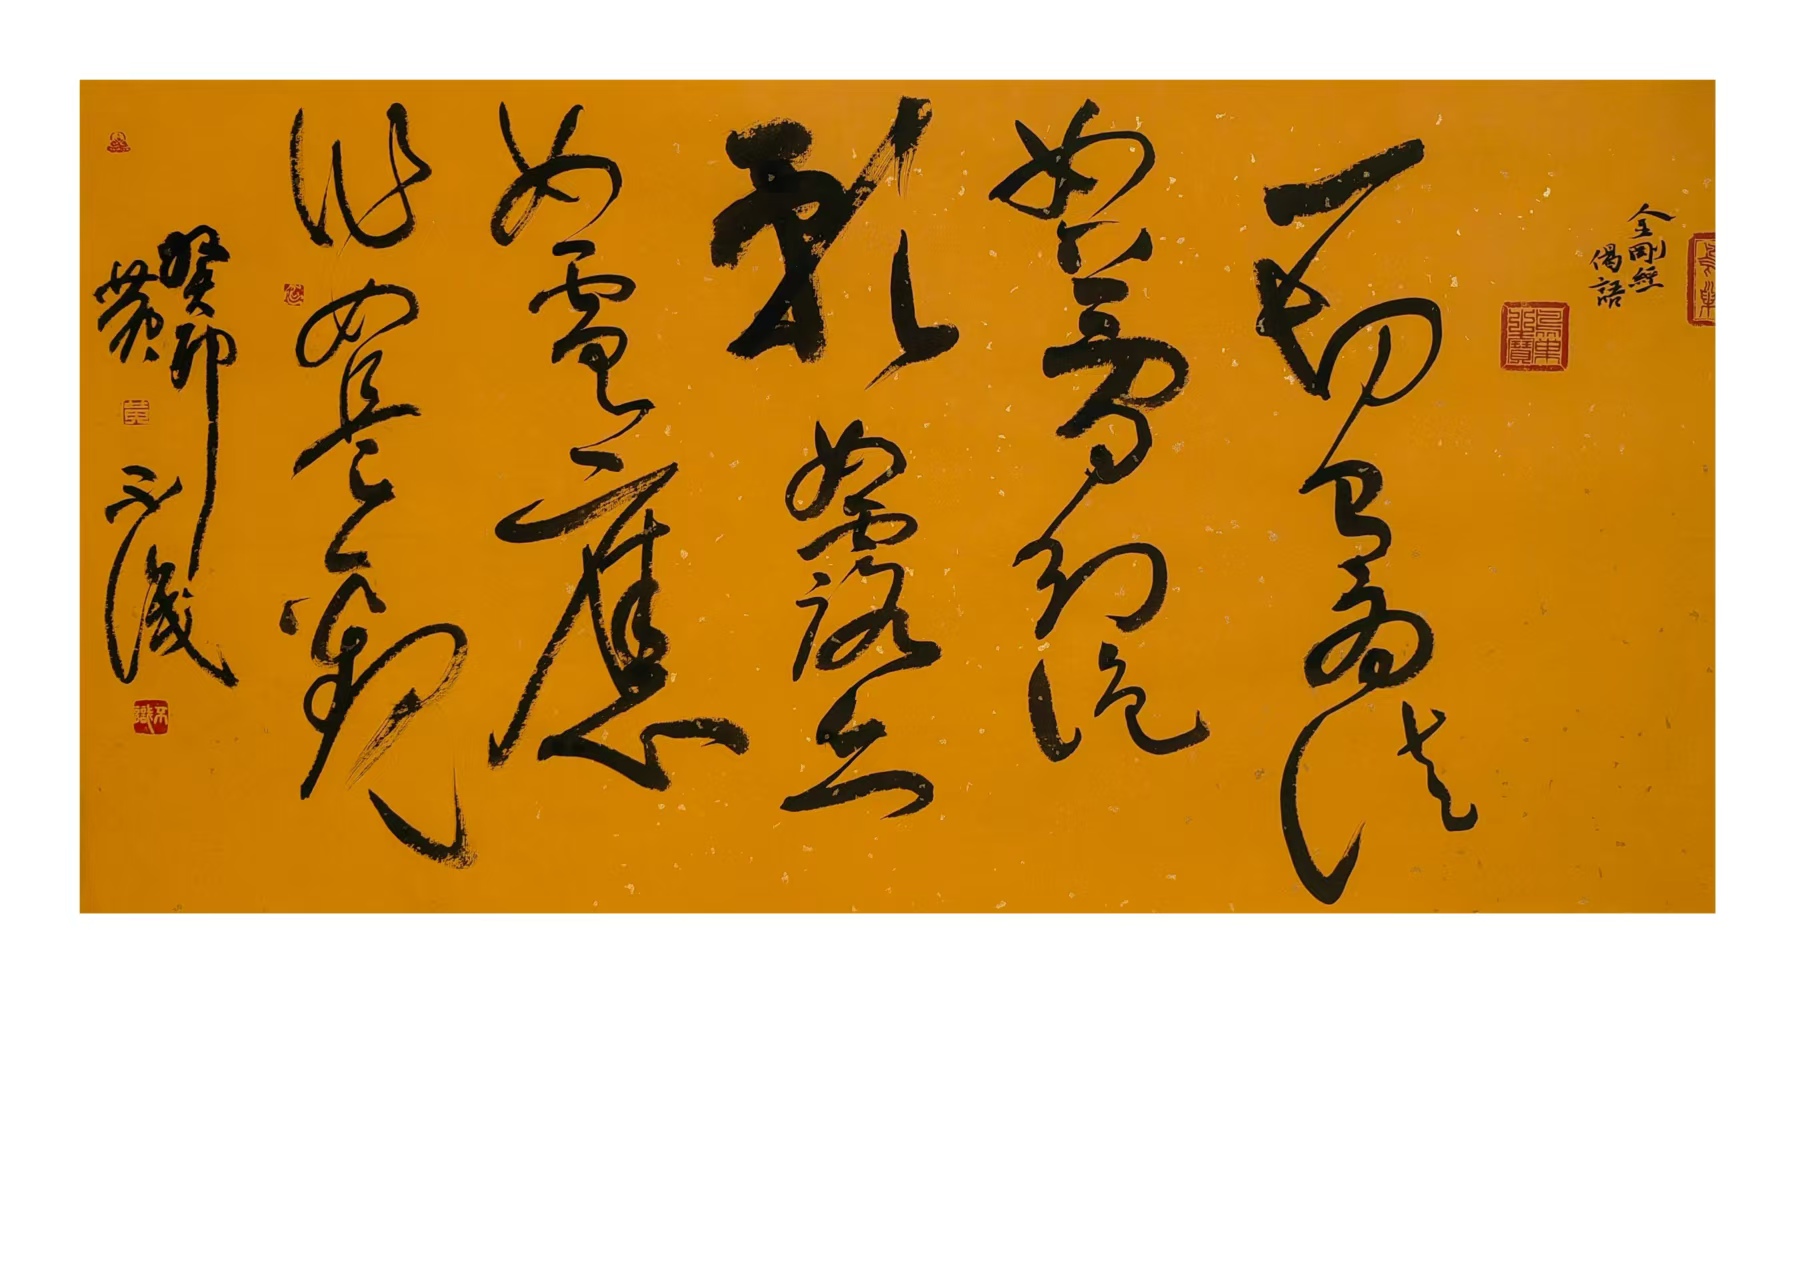 金剛經
偈語
一切有為法
如夢幻泡
影如露亦
如電應
作如是觀
癸卯
黄不識
不識